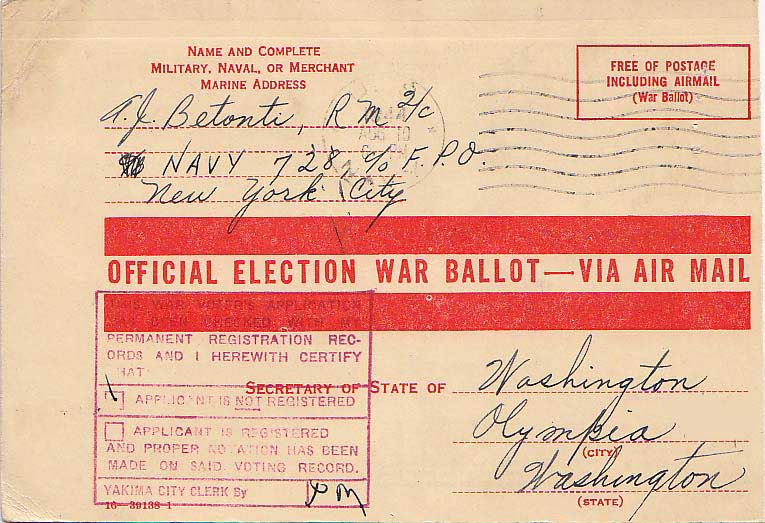 NAME AND COMPLETE
MILITARY, NAVAL, OR MERCHANT
MARINE ADDRESS
FREE OF POSTAGE
INCLUDING AIRMAIL
(War Ballot)
A.J. Betonti, RM 2/c
NAVY 728 c/o F.P.O.
New York City
AUG 10
OFFICIAL ELECTION WAR BALLOT—VIA AIR MAIL
THIS WAR VOTER'S APPLICATION
HAS BEEN CHECKED WITH MY
PERMANENT REGISTRATION REC-
ORDS AND I HEREWITH CERTIFY
THAT
APPLICANT IS NOT REGISTERED
APPLICANT IS REGISTERED
AND PROPER NOTATION HAS BEEN
MADE ON SAID VOTING RECORD.
YAKIMA CITY CLERK By
16—39138-1
SECRETARY OF STATE OF Washington
Olympia
(CITY)
Washington
(STATE)